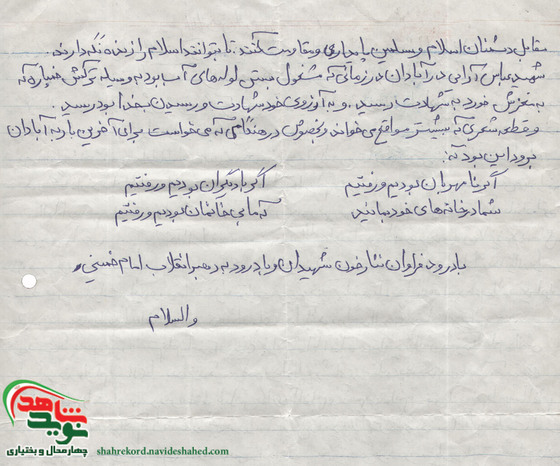 مقابل دشمنان اسلام و مسلمین پایداری و مقاومت کنند. تا بتوانند اسلام را زنده نگه دارند.
شهید عباس اکرامی در آبادان در زمانی که مشغول بستن لوله‌های آب بود به وسیله ترکش خمپاره که
به مغزش خورد به شهادت رسید. و به آرزوی خود شهادت و رسیدن به خدا بود رسید.
و قطعه شعری که بیشتر مواقع می‌خواند و بخصوص در هنگامی که می‌خواست برای آخرین بار به آبادان
برود این بود که:
اگر نامهربان بودیم و رفتیم اگر بار گران بودیم و رفتیم
شما در خانه‌های خود بمانید که ما بی خانمان بودیم و رفتیم
با درود فراوان نثار خون شهیدان و با درود به رهبر انقلاب امام خمینی
والسلام
نوید شاهد
چهارمحال و بختیاری
shahrekord.navideshahed.com